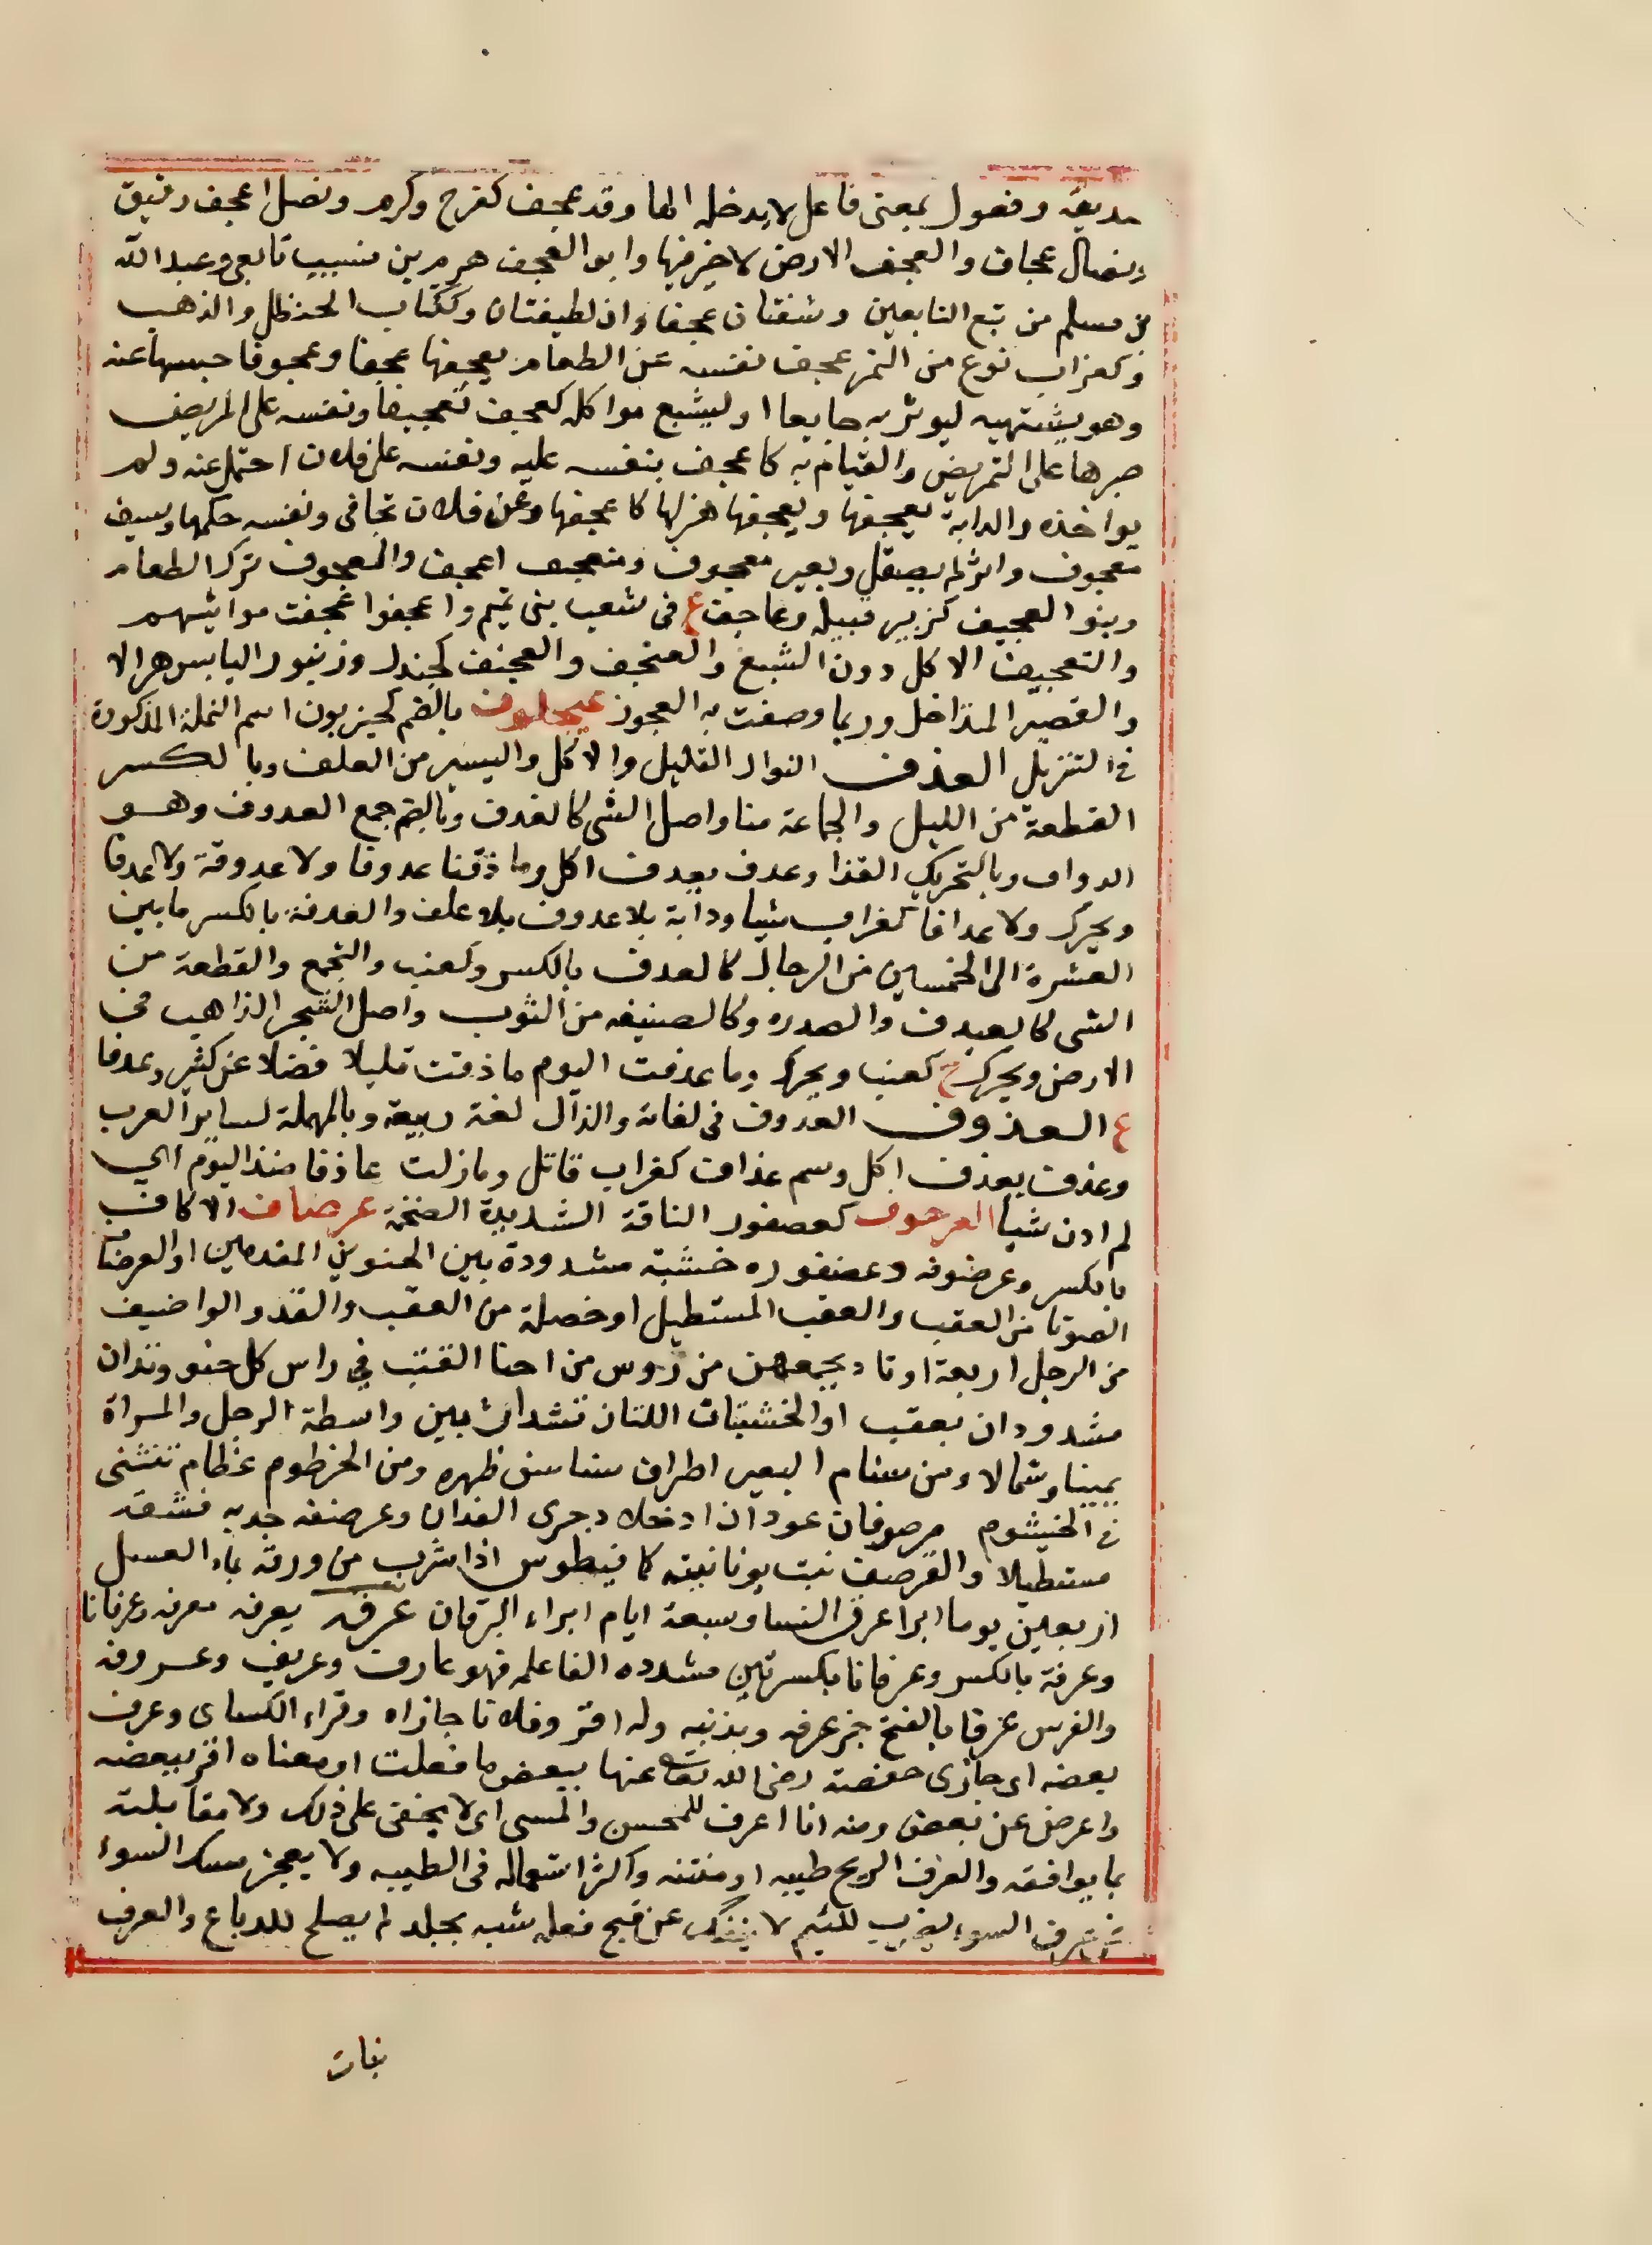 صديقة وفعول بمعنى فاعل لا يدخله الها وقد عجف كفرح وكرم ونصل اعجف رقيق
ونصال عجاف والعجف الارض لا خير فيها وابو العجف هرم بن نسيب تابعى وعبد الله
بن مسلم من تبع التابعين وشفتان عجفاوان لطيفتان وككتاب الحنظل والذهب
وكغراب نوع من التمر عجف نفسه عن الطعام يعجفها عجفا وعجوفا حبسها عنه
وهو يشتهيه ليوثر به جايعا او ليشبع مواكله كعجف تعجيفا ونفسه على المريض
صبرها على التمريض والقيام به كاعجف بنفسه عليه ونفسه على فلان احتمل عنه ولم
يواخذه والدابة يعجفها ويعجفها هزلها كاعجفها وعن فلان تجافى ونفسه حكمها وسيف
معجوف داثر لم يصقل وبعير معجوف ومنعجف اعجف والعجوف ترك الطعام
وبنو العجيف كزبير قبيله وعاجف ع فى شعب بنى تميم واعجفوا عجفت مواشيهم
والتعجيف الاكل دون الشبع والعنجف والعجنف كجندل وزنبور اليابس هزالا
والقصير المتداخل وربما وصفت به العجوز عيجلوف بالضم كحيزبون اسم النملة المذكورة
فى التنزيل العدف النوال القليل والاكل واليسير من العلف وبا لكسر
القطعة من الليل والجماعة منا واصل الشى كالعدف وبالضم جمع العدوف وهو
الدواف وبالتحريك القذا وعدف يعدف اكل وما ذقنا عدوفا ولا عدوفة ولا عدفا
ويحرك ولا عدافا كغراب شيا ودابة بلا عدوف بلا علف والعدفة بالكسر ما بين
العشرة الى الخمسين من الرجال كالعدف بالكسر وكعنب والتجمع والقطعة من
الشى كالعيدف والصدره وكالصنيفه من الثوب واصل الشجر الذاهب فى
الارض ويحرك ج كعنب ويحرك وما عدفت اليوم ما ذقت قليلا فضلا عن كثير وعدفا
ع العذوف العدوف فى لغاته والذال لغة ربيعة وبالمهملة لساير العرب
وعذف يعذف اكل وسم عذاف كغراب قاتل ومازلت عاذفا منذ اليوم اي
لم اذن شيا العرجوف كعصفور الناقة الشديدة الضخمة عرصاف الاكاف
بالكسر وعرصوفه وعصفوره خشبة مشدودة بين الحنوين المقدمين او العرصاف
السوط من العقب والعقب المستطيل او خصلة من العقب والقد والعراصيف
من الرحل اربعة اوتاد يجمعن من روس من احنا القتب في راس كل حنو وتدان
مشدودان بعقب او الخشبتان اللتان تشدان بين واسطة الرحل والمراة
يمينا وشمالا ومن سنام البعير اطراف سناسن ظهره ومن الخرطوم عظام تنثنى
فى الخيشوم عرصوفان عودان ادخلا دجرى الفدان وعرصفه جذبه فشقه
مستطيلا والعرصف نبت يونانيته كمافيطوس اذا شرب من ورقه بماء العسل
اربعين يوما ابرا عرق النسا وسبعة ايام ابراء اليرقان عرفه يعرفه معرفه وعرفانا
وعرفة بالكسر وعرفانا بكسرتين مشدده الفا علمه فهو عارف وعريف وعروفه
والفرس عرفا بالفتح جز عرفه وبذنبه وله اقر وفلانا جازاه وقراء الكساى وعرف
بعضه اى جازى حفصة رضى الله تعالى عنها ببعض ما فعلت او معناه اقر ببعضه
واعرض عن بعض ومنه انا اعرف للمحسن والمسى اى لا يخفى على ذلك ولا مقابلته
بما يوافقه والعرف الريح طيبه او منتنه واكثر استعماله فى الطيبه ولا يعجز مسك السوء
عن عرف السوء يضرب للئيم لا ينفك عن قبح فعله شبه بجلد لم يصلح للدباغ والعرف
نبات